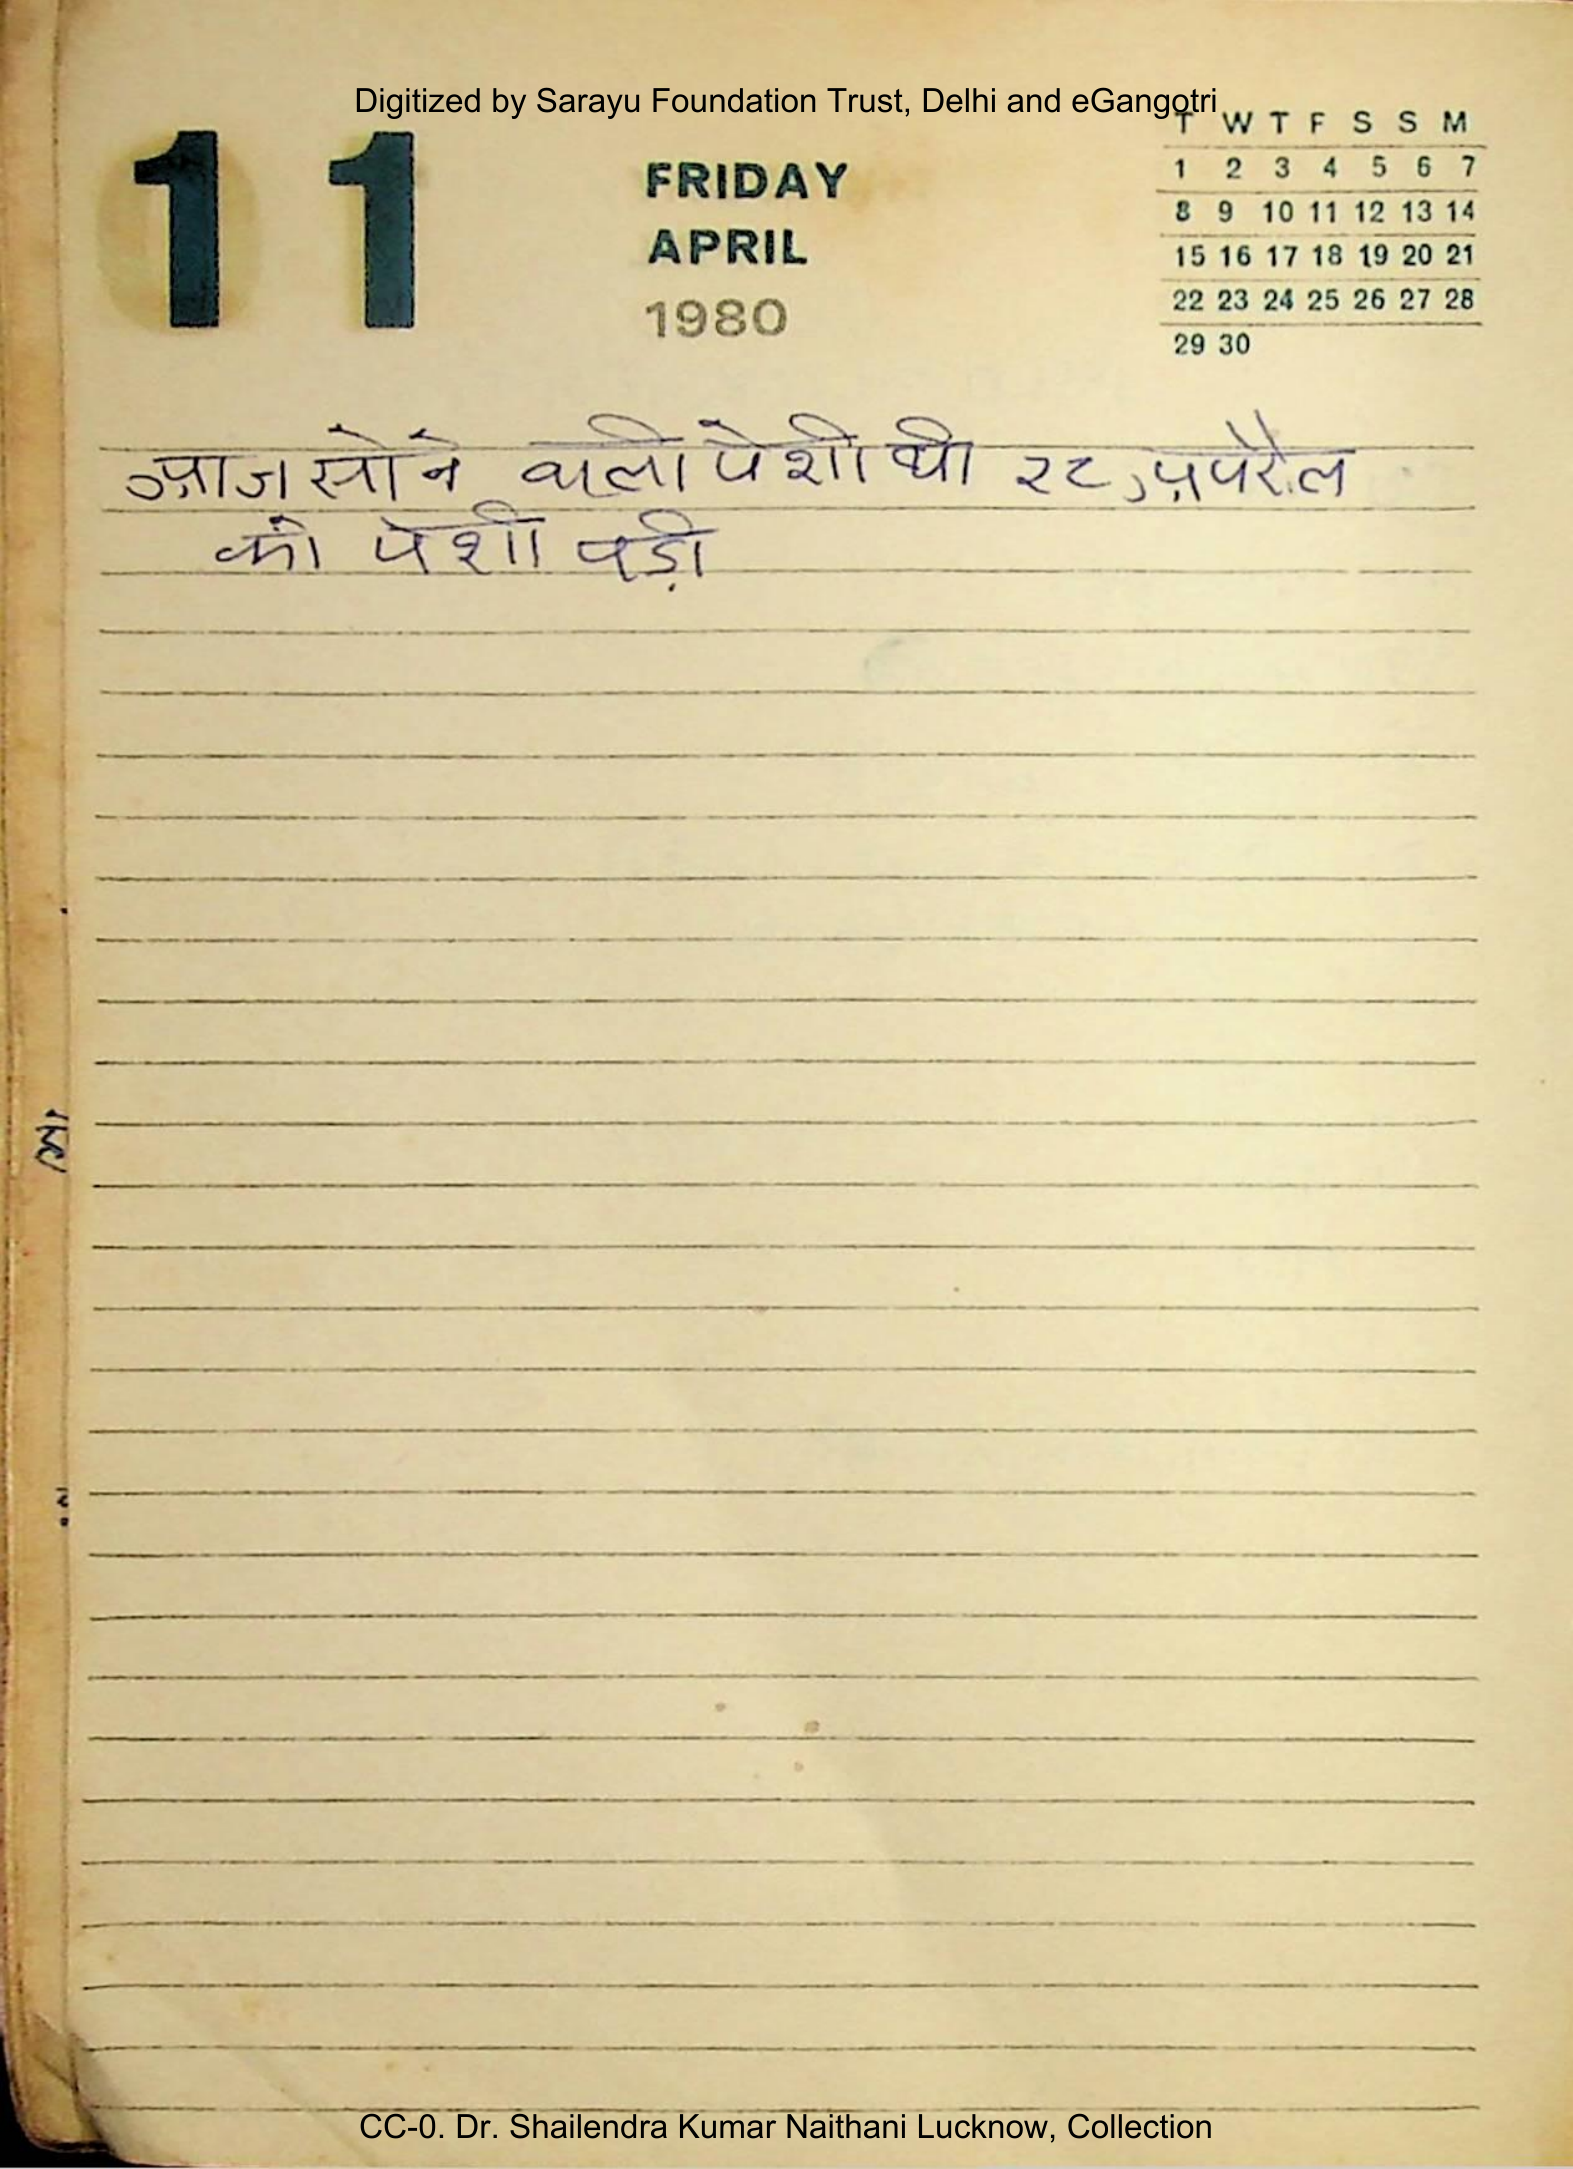 Digitized by Sarayu Foundation Trust, Delhi and eGangotri
11
FRIDAY
APRIL
1980
T W T F S S M
1 2 3 4 5 6 7
8 9 10 11 12 13 14
15 16 17 18 19 20 21
22 23 24 25 26 27 28
29 30
आज सोने वाली पेशी थी २८ अपरैल
को पेशी पड़ी
CC-0. Dr. Shailendra Kumar Naithani Lucknow, Collection